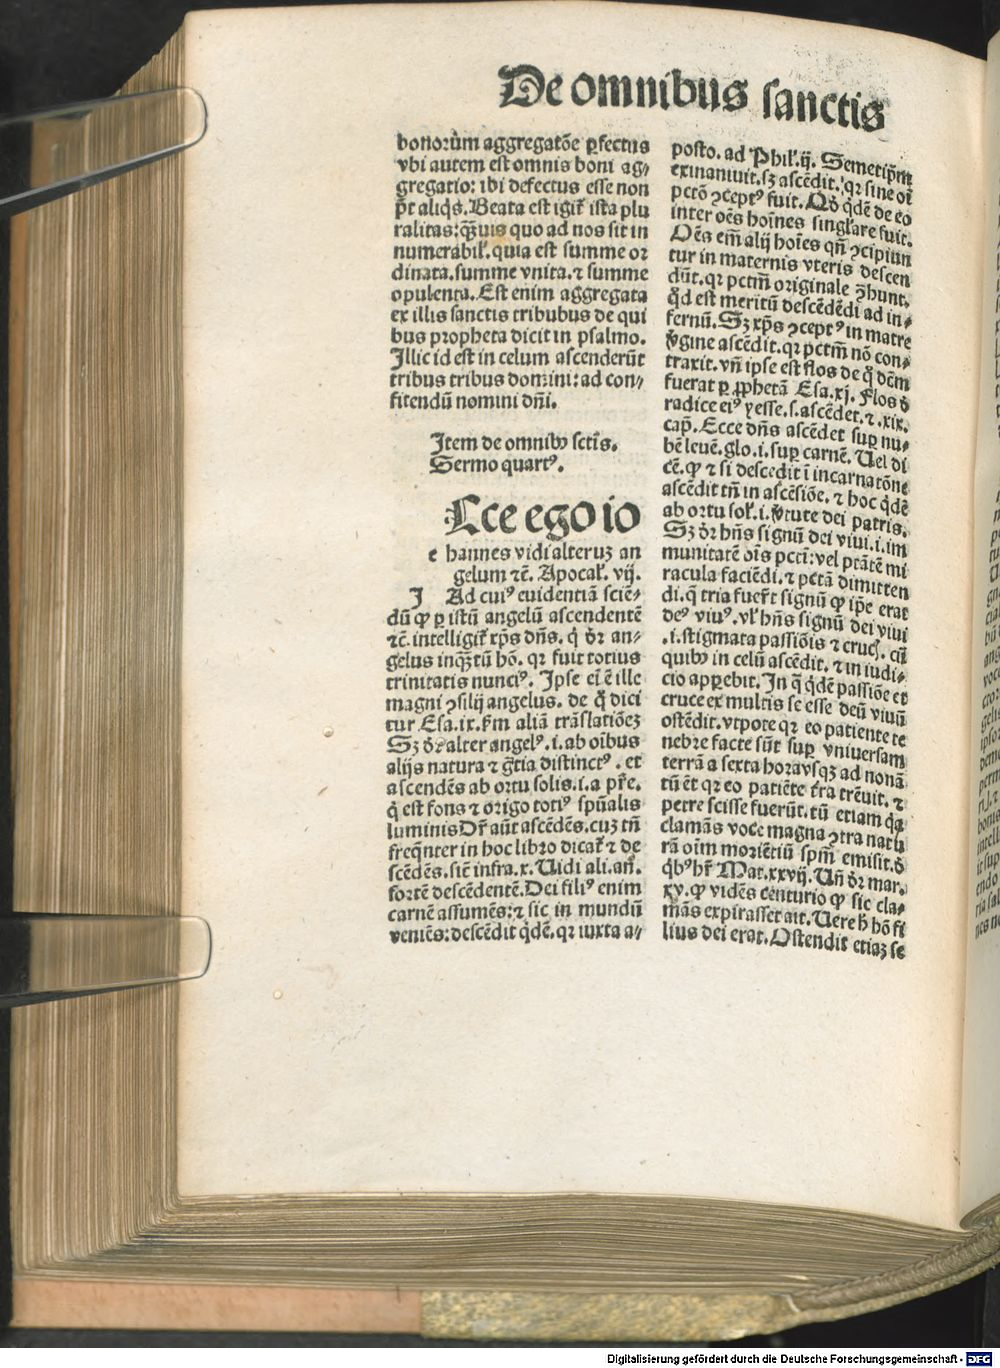 De omnibus sanctis
bonorùm aggregatōe ꝑfectus
vbi autem est omnis boni ag⸗
gregatio: ibi defectus esse non
p̄t aliqd̄s. Beata est igit̄ ista plu
ralitas: qͣꝫuis quo ad nos sit in
numerabil̄. quia est summe or
dinata. summe vnita. ⁊ summe
opulenta. Est enim aggregata
ex illis sanctis tribubus de qui
bus propheta dicit in psalmo.
Illic id est in celum ascenderūt
tribus tribus domini: ad con⸗
fitendū nomini dn̄i.
Item de omnibꝰ sctīs.
Sermo quartꝰ.
Ecce ego io
e hannes vidi alteruꝫ an
gelum ⁊c̄. Apocal̄. vij.
I Ad cuiꝰ euidentiā sciē⸗
dū ꝙ ꝑ istū angelū ascendentē
⁊c̄. intelligit̄ xp̄s dn̄s. q̇ dr̄ an⸗
gelus inqͣꝫtū hō. qꝛ fuit totius
trinitatis nunciꝰ. Ipse ei̅ ē ille
magni ꝯsilij angelus. de q̊ dici
tur Esa. ix. ẜm aliā trāslatiōeꝫ
Sꝫ dr̄ alter angelꝰ. i. ab oībus
alijs natura ⁊ gr̄tia distinctꝰ. et
ascendēs ab ortu solis. i. a pr̄e.
q̇ est fons ⁊ origo totiꝰ spūalis
luminis Dr̄ aūt ascēdēs. cuꝫ tn̄
freqn̄ter in hoc libro dicat̄ ⁊ de
scēdēs. sic̄ infra. x. Uidi ali. an̄.
fortē descēdentē. Dei filiꝰ enim
carnē assumēs: ⁊ sic in mundū
veniēs: descēdit qd̄ē. qꝛ iuxta a⸗
posto. ad Phil̄. ij. Semetip̄m
exinaniuit. sꝫ ascēdit. qꝛ sine oī
pctō ꝯceptꝰ fuit. Qd̄ qd̄ē de eo
inter oēs hoīnes singl̄are fuit.
Oēs em̄ alij hoīes qn̄ ꝯcipiun
tur in maternis vteris descen
dūt. qꝛ pctm̄ originale ꝯhunt.
qd̄ est meritū descēdēdi ad in⸗
fernū. Sꝫ xp̄s ꝯceptꝰ in matre
v̊gine ascēdit. qꝛ pctm̄ nō con⸗
traxit. vn̄ ipse est flos de q̊ dēm
fuerat ꝑ ꝓphetā Esa. xj. Flos d̄
radice eiꝰ yesse. s. ascēdet. ⁊. xix.
cap̄. Ecce dn̄s ascēdet suꝑ nu⸗
bē leuē. glo. i. suꝑ carnē. Uel di
cē. ꝙ ⁊ si descedit ī incarnatōne
ascēdit tn̄ in ascēsiōe. ⁊ hoc qd̄ē
ab ortu sol̄. i. v̊tute dei patris.
Sꝫ dr̄ hn̄s signū dei viui. i. im
munitatē oīs pcti̅: vel ptātē mi
racula faciēdi. ⁊ pctā dimitten
di. q̄ tria fuer̄t signū ꝙ ip̄e erat
deꝰ viuꝰ. vl̄ hn̄s signū dei viui
. i. stigmata passiōis ⁊ crucꝭ. cū
quibꝰ in celū ascēdit. ⁊ in iudi⸗
cio apꝑebit. In q̄ qd̄ē passiōe et
cruce ex multis se esse deū viuū
ostēdit. vtpote qꝛ eo patiente te
nebre facte sūt suꝑ vniuersam
terrā a sexta hora vsqꝫ ad nonā
tū ēt qꝛ eo patiēte t̄ra trēuit. ⁊
petre scisse fuerūt. tū etiam qꝛ
clamās voce magna ꝯtra natu
rā oīm moriētiū spm̄ emisit. d̄
qͥbꝰ hr̄ Mat. xxvij. Un̄ dr̄ mar.
xv. ꝙ vidēs centurio ꝙ sic cla⸗
mās expirasset ait. Uere h̄ hō fi
lius dei erat. Ostendit etiaꝫ se
Digitalisierung gefördert durch die Deutsche Forschungsgemeinschaft - DFG